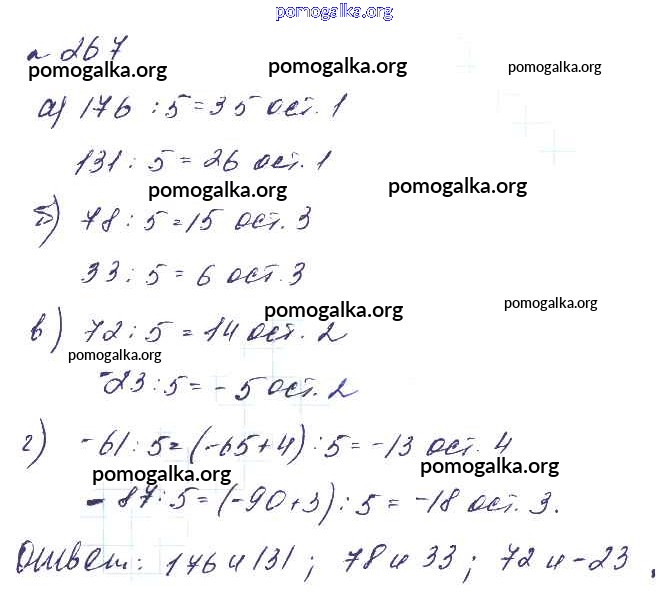 pomogalka.org
№ 267
pomogalka.org pomogalka.org pomogalka.org
а) 176 : 5 = 35 ост. 1
131 : 5 = 26 ост. 1
pomogalka.org pomogalka.org
б) 78 : 5 = 15 ост. 3
33 : 5 = 6 ост. 3
pomogalka.org pomogalka.org
в) 72 : 5 = 14 ост. 2
pomogalka.org
-23 : 5 = - 5 ост. 2
г) -61 : 5 = (-65+4) : 5 = -13 ост. 4
pomogalka.org pomogalka.org
- 87 : 5 = (-90+3) : 5 = -18 ост. 3.
Ответ: 176 и 131 ; 78 и 33 ; 72 и -23 ,